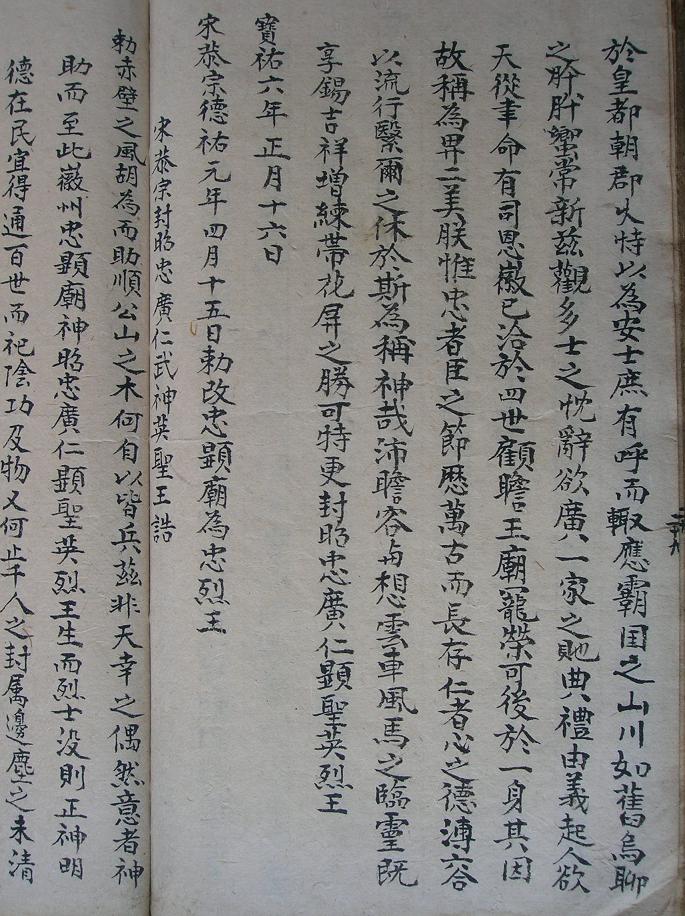 於皇都朝郡火特以為安士庶有呼而輙應霸国之山川如舊烏聊
之肸蚃常新兹觀多士之忱辭欲廣一家之貤典禮由義起人欲
天從聿命有司恩徽已洽於四世顧瞻王廟寵榮可後於一身其因
故稱為畀二美朕惟忠者臣之節歷萬古而長存仁者心之德溥六合
以流行繄爾之休於斯為稱神哉沛瞻容与想雲車風馬之臨霊既
享錫吉祥增練帶花屏之勝可特更封昭忠廣仁顯聖英烈王
寶祐六年正月十六日
宋恭宗德祐元年四月十五日勅改忠顯廟為忠烈王
宋恭宗封昭忠廣仁武神英聖王誥
勅赤壁之風胡為而助順公山之木何自以皆兵兹非天幸之偶然意者神
助而至此徽州忠顯廟神昭忠廣仁顯聖英烈王生而烈士没則正神明
德在民宜得通百世而祀陰功及物又何止千人之封属邊塵之未清